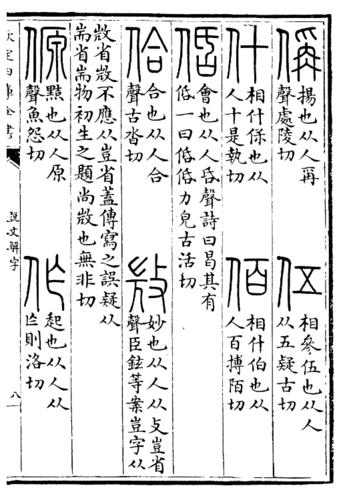 偁 揚也从人再
聲處陵切
伍 相參伍也从人
从五疑古切
什 相什保也从
人十是執切
佰 相什伯也从
人百搏陌切
佸 會也从人𠯑聲詩曰曷其有
佸一曰佸佸力皃古活切
佮 合也从人合
聲古沓切
𢼸 妙也从人从攴豈省
聲臣鉉等案豈字从
敳省敳不應从豈省蓋傳寫之誤疑从
耑省耑物初生之題尚敳也無非切
傆 黠也从人原
聲魚怨切
作 起也从人从
亾則洛切
欽定四庫全書
說文解字